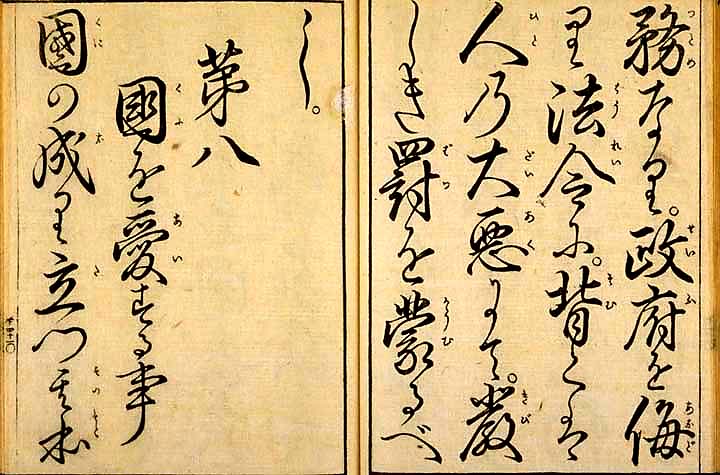 務なり。政府を侮
り法令に。背くは
人の大悪にて。厳
しき罰を蒙るべ
し。
第八
國を愛する事
國の成り立つ其本